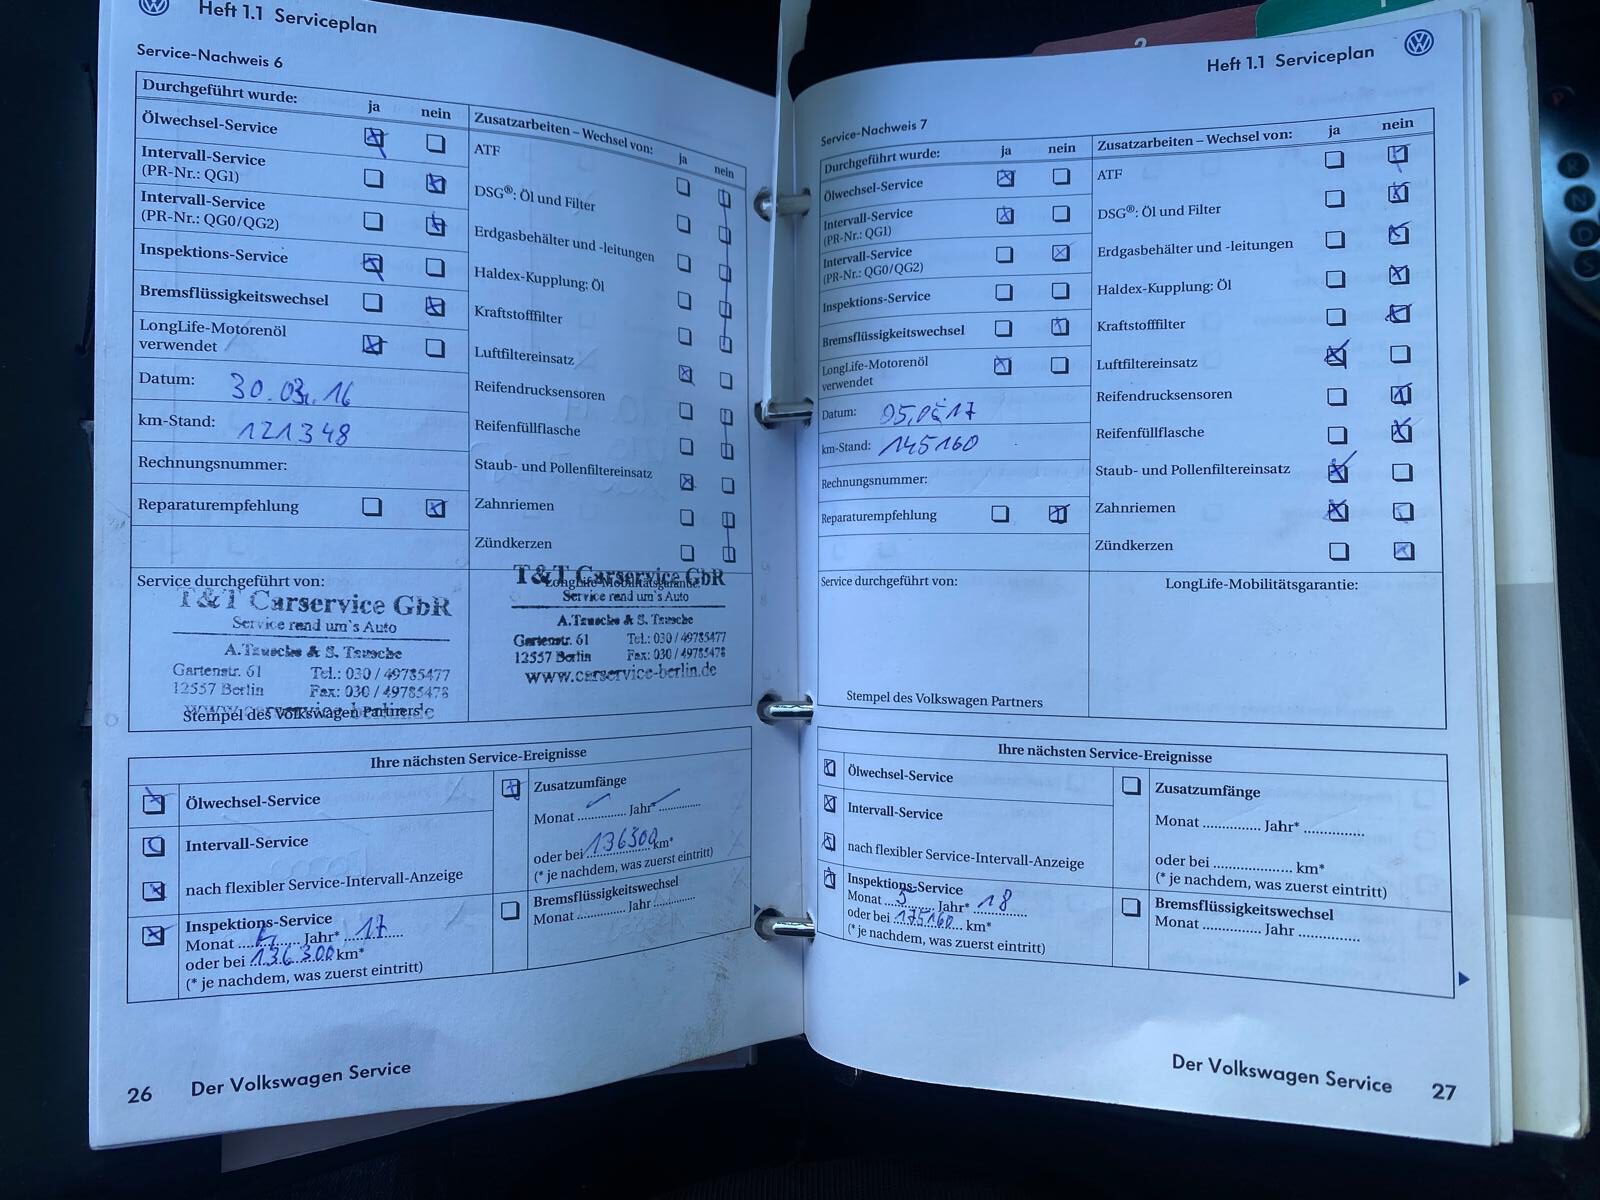 Heft 1.1 Serviceplan
Service-Nachweis 6
Durchgeführt wurde: ja nein
Ölwechsel-Service
Intervall-Service
(PR-Nr.: QG1)
Intervall-Service
(PR-Nr.: QG0/QG2)
Inspektions-Service
Bremsflüssigkeitswechsel
LongLife-Motorenöl
verwendet
Datum: 30.03.16
km-Stand: 121348
Rechnungsnummer:
Reparaturempfehlung
Zusatzarbeiten – Wechsel von: ja nein
ATF
DSG®: Öl und Filter
Erdgasbehälter und -leitungen
Haldex-Kupplung: Öl
Kraftstofffilter
Luftfiltereinsatz
Reifendrucksensoren
Reifenfüllflasche
Staub- und Pollenfiltereinsatz
Zahnriemen
Zündkerzen
Service durchgeführt von:
T&T Carservice GbR
Service rend um's Auto
A.Tzusche & S. Tzusche
Gartenstr. 61 Tel.: 030 / 49785477
12557 Berlin Fax: 030 / 49785478
Stempel des Volkswagen Partners
LongLife-Mobilitätsgarantie:
T&T Carservice GbR
Service rend um's Auto
A.Tzusche & S. Tzusche
Gartenstr. 61 Tel.: 030 / 49785477
12557 Berlin Fax: 030 / 49785478
www.carservice-berlin.de
Ihre nächsten Service-Ereignisse
Ölwechsel-Service
Intervall-Service
nach flexibler Service-Intervall-Anzeige
Inspektions-Service
Monat ........ Jahr* 17
oder bei 136300 km*
(* je nachdem, was zuerst eintritt)
Zusatzumfänge
Monat .............. Jahr* ..............
oder bei 136300 km*
(* je nachdem, was zuerst eintritt)
Bremsflüssigkeitswechsel
Monat .............. Jahr ..............
26 Der Volkswagen Service
2
1
Heft 1.1 Serviceplan
Service-Nachweis 7
Durchgeführt wurde: ja nein
Ölwechsel-Service
Intervall-Service
(PR-Nr.: QG1)
Intervall-Service
(PR-Nr.: QG0/QG2)
Inspektions-Service
Bremsflüssigkeitswechsel
LongLife-Motorenöl
verwendet
Datum:
km-Stand: 145160
Rechnungsnummer:
Reparaturempfehlung
Zusatzarbeiten – Wechsel von: ja nein
ATF
DSG®: Öl und Filter
Erdgasbehälter und -leitungen
Haldex-Kupplung: Öl
Kraftstofffilter
Luftfiltereinsatz
Reifendrucksensoren
Reifenfüllflasche
Staub- und Pollenfiltereinsatz
Zahnriemen
Zündkerzen
Service durchgeführt von:
Stempel des Volkswagen Partners
LongLife-Mobilitätsgarantie:
Ihre nächsten Service-Ereignisse
Ölwechsel-Service
Intervall-Service
nach flexibler Service-Intervall-Anzeige
Inspektions-Service
Monat 5 Jahr* 18
oder bei 175160 km*
(* je nachdem, was zuerst eintritt)
Zusatzumfänge
Monat .............. Jahr* ..............
oder bei .................. km*
(* je nachdem, was zuerst eintritt)
Bremsflüssigkeitswechsel
Monat .............. Jahr ..............
Der Volkswagen Service 27
P
R
N
D
S